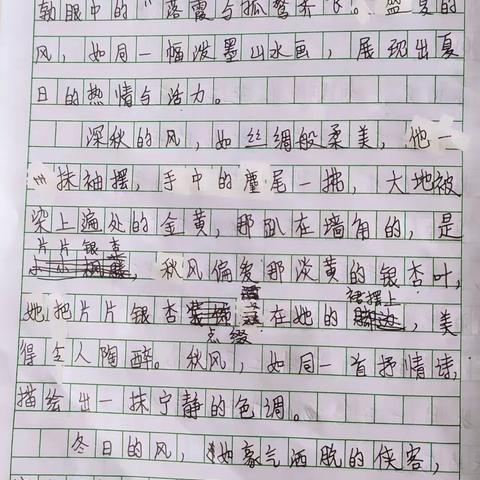 勃眼中的"落霞与孤鹜齐飞"。盛夏的
风，如同一幅泼墨山水画，展现出夏
日的热情与活力。
深秋的风，如丝绸般柔美，他一
抹袖摆，手中的麈尾一拂，大地被
染上遍处的金黄，那趴在墙角的，是
片片银杏
，秋风偏爱那淡黄的银杏叶，
裙摆上
她把片片银杏在她的，美
点缀
得令人陶醉。秋风，如同一首抒情诗，
描绘出一抹宁静的色调。
冬日的风，如豪气洒脱的侠客，